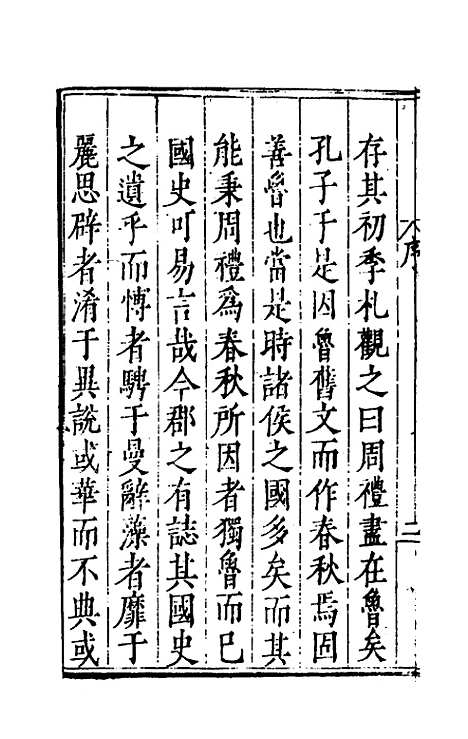 序
二
存其初季札觀之曰周禮盡在魯矣
孔子于是因魯舊文而作春秋焉固
善魯也當是時諸侯之國多矣而其
能秉周禮為春秋所因者獨魯而已
國史可易言哉今郡之有誌其國史
之遺乎而博者騁于曼辭藻者靡于
麗思辟者淆于異說或華而不典或